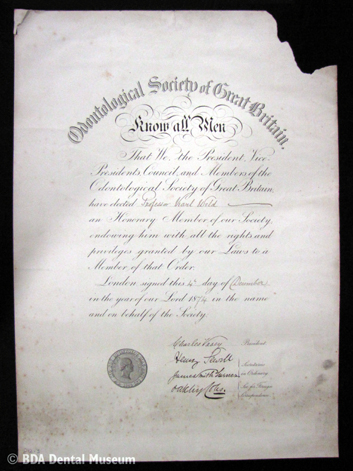 Odontological Society of Great Britain.
Know all Men
That We the President, Vice
Presidents, Council, and Members of the
Odontological Society of Great Britain
have elected
an Honorary Member of our Society
endowing him with all the rights and
privileges granted by our Laws to a
Member of that Order.
London signed this 4th day of December
in the year of our Lord 1874 in the name
and on behalf of the Society.
President
Secretaries
in Ordinary
Sec for Foreign
Correspondence
© BDA Dental Museum